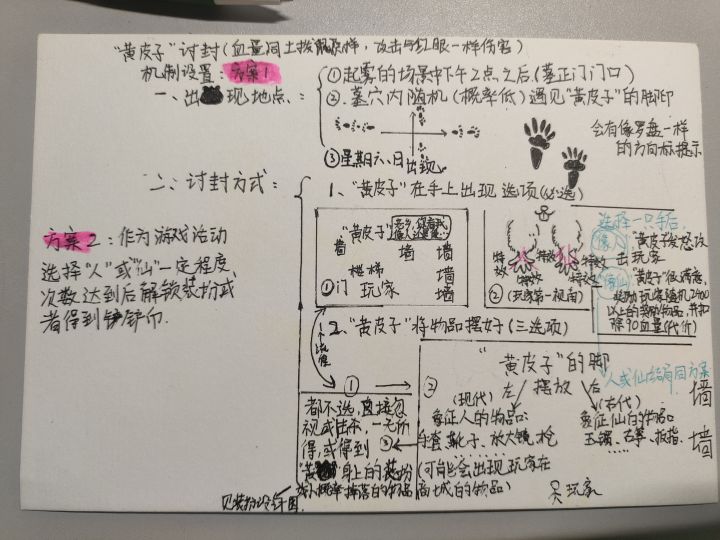 "黄皮子"讨封(血量同土拨鼠一样,攻击与红眼一样伤害)
机制设置:方案1
一、出现地点、:
①起雾的场景中下午2点之后.(墓正门门口)
②.墓穴内随机(概率低)遇见"黄皮子"的脚印
会有像罗盘一样
的方向标提示
③星期六、日出现
二、讨封方式:
1、"黄皮子"在手上出现选项(必选)
"黄皮子"
墙 墙 墙
楼梯 墙
①门 玩家 墙
特效 特效
特效 特效
②(玩家第一视角)
选择一只手后
像人 "黄皮子"发怒攻
出玩家
像仙 "黄皮子"很满意,
奖励玩家随机2400
以上的奖励物品,并扣
除90血量(代价)
人或仙结局同方案
方案2:作为游戏活动
选择"人"或"仙"一定程度、
次数达到后解锁装扮或
者得到铲铲币.
2、"黄皮子"将物品摆好(三选项)
①
都不选,直接包
视或击杀,一无所
得,或得到
"黄 "身上的装扮
或小概率掉落的物品
见装扮设计图
②
"黄皮子"的脚
左 摆放 右
(现代) (古代)
象征人的物品: 象征仙的物品:
③手套、靴子、放大镜、枪
玉镯、古筝、板指.
(可能会出现玩家在
商城的物品)
玩家
墙
墙